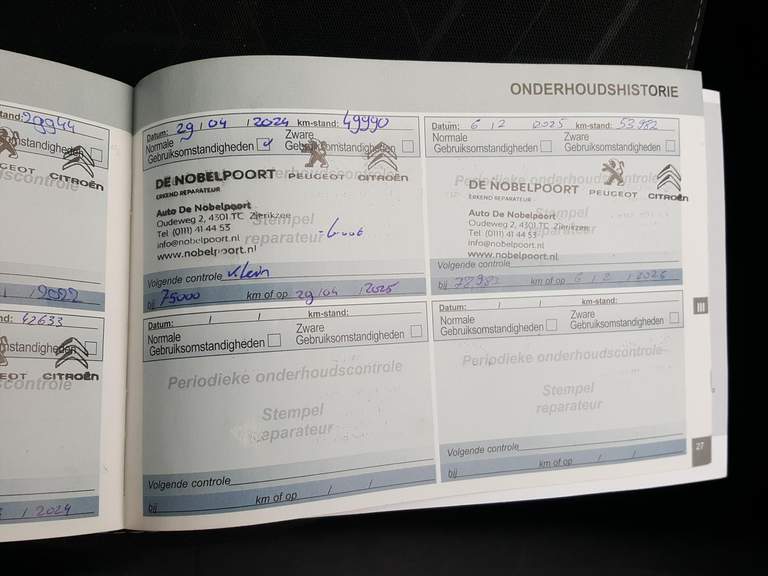 stand: 29944
nstandigheden
PEUGEOT CITROËN
scontrole
/2022
stand: 42633
nstandigheden
PEOT CITROËN
scontrole
/ 2024
ONDERHOUDSHISTORIE
Datum: 29 / 04 / 2024 km-stand: 49990
Normale Gebruiksomstandigheden
Zware Gebruiksomstandigheden
Periodieke onderhoudscontrole
DE NOBELPOORT
ERKEND REPARATEUR
PEUGEOT CITROËN
Auto De Nobelpoort
Oudeweg 2, 4301 TC Zierikzee
Tel (0111) 41 44 53
info@nobelpoort.nl
www.nobelpoort.nl
Stempel
reparateur
- Groot
Volgende controle klein
bij 75000 km of op 29 / 04 / 2025
Datum: 6 / 2 / 2025 km-stand: 53.982
Normale Gebruiksomstandigheden
Zware Gebruiksomstandigheden
Periodieke onderhoudscontrole
DE NOBELPOORT
ERKEND REPARATEUR
PEUGEOT CITROËN
Auto De Nobelpoort
Oudeweg 2, 4301 TC Zierikzee
Tel (0111) 41 44 53
info@nobelpoort.nl
www.nobelpoort.nl
Stempel
reparateur
Volgende controle
bij 78982 km of op 6 / 2 / 2026
Datum: / / km-stand:
Normale Gebruiksomstandigheden
Zware Gebruiksomstandigheden
Periodieke onderhoudscontrole
Stempel
reparateur
Volgende controle
bij km of op / /
Datum: / / km-stand:
Normale Gebruiksomstandigheden
Zware Gebruiksomstandigheden
Periodieke onderhoudscontrole
Stempel
reparateur
Volgende controle
bij km of op / /
III
27